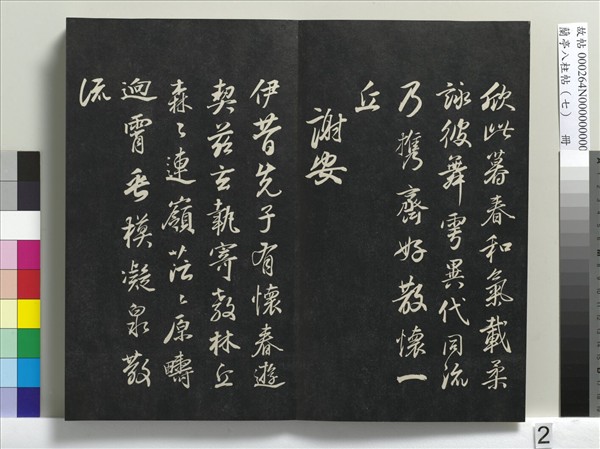 欣此暮春和氣載柔
詠彼舞雩異代同流
乃攜齊好散懷一
丘
謝安
伊昔先子有懷春遊
契茲言執寄敖林丘
森〻連嶺茫〻原疇
逈霄垂模凝泉散
流
故帖 000264N000000000
蘭亭八柱帖(七) 冊
2